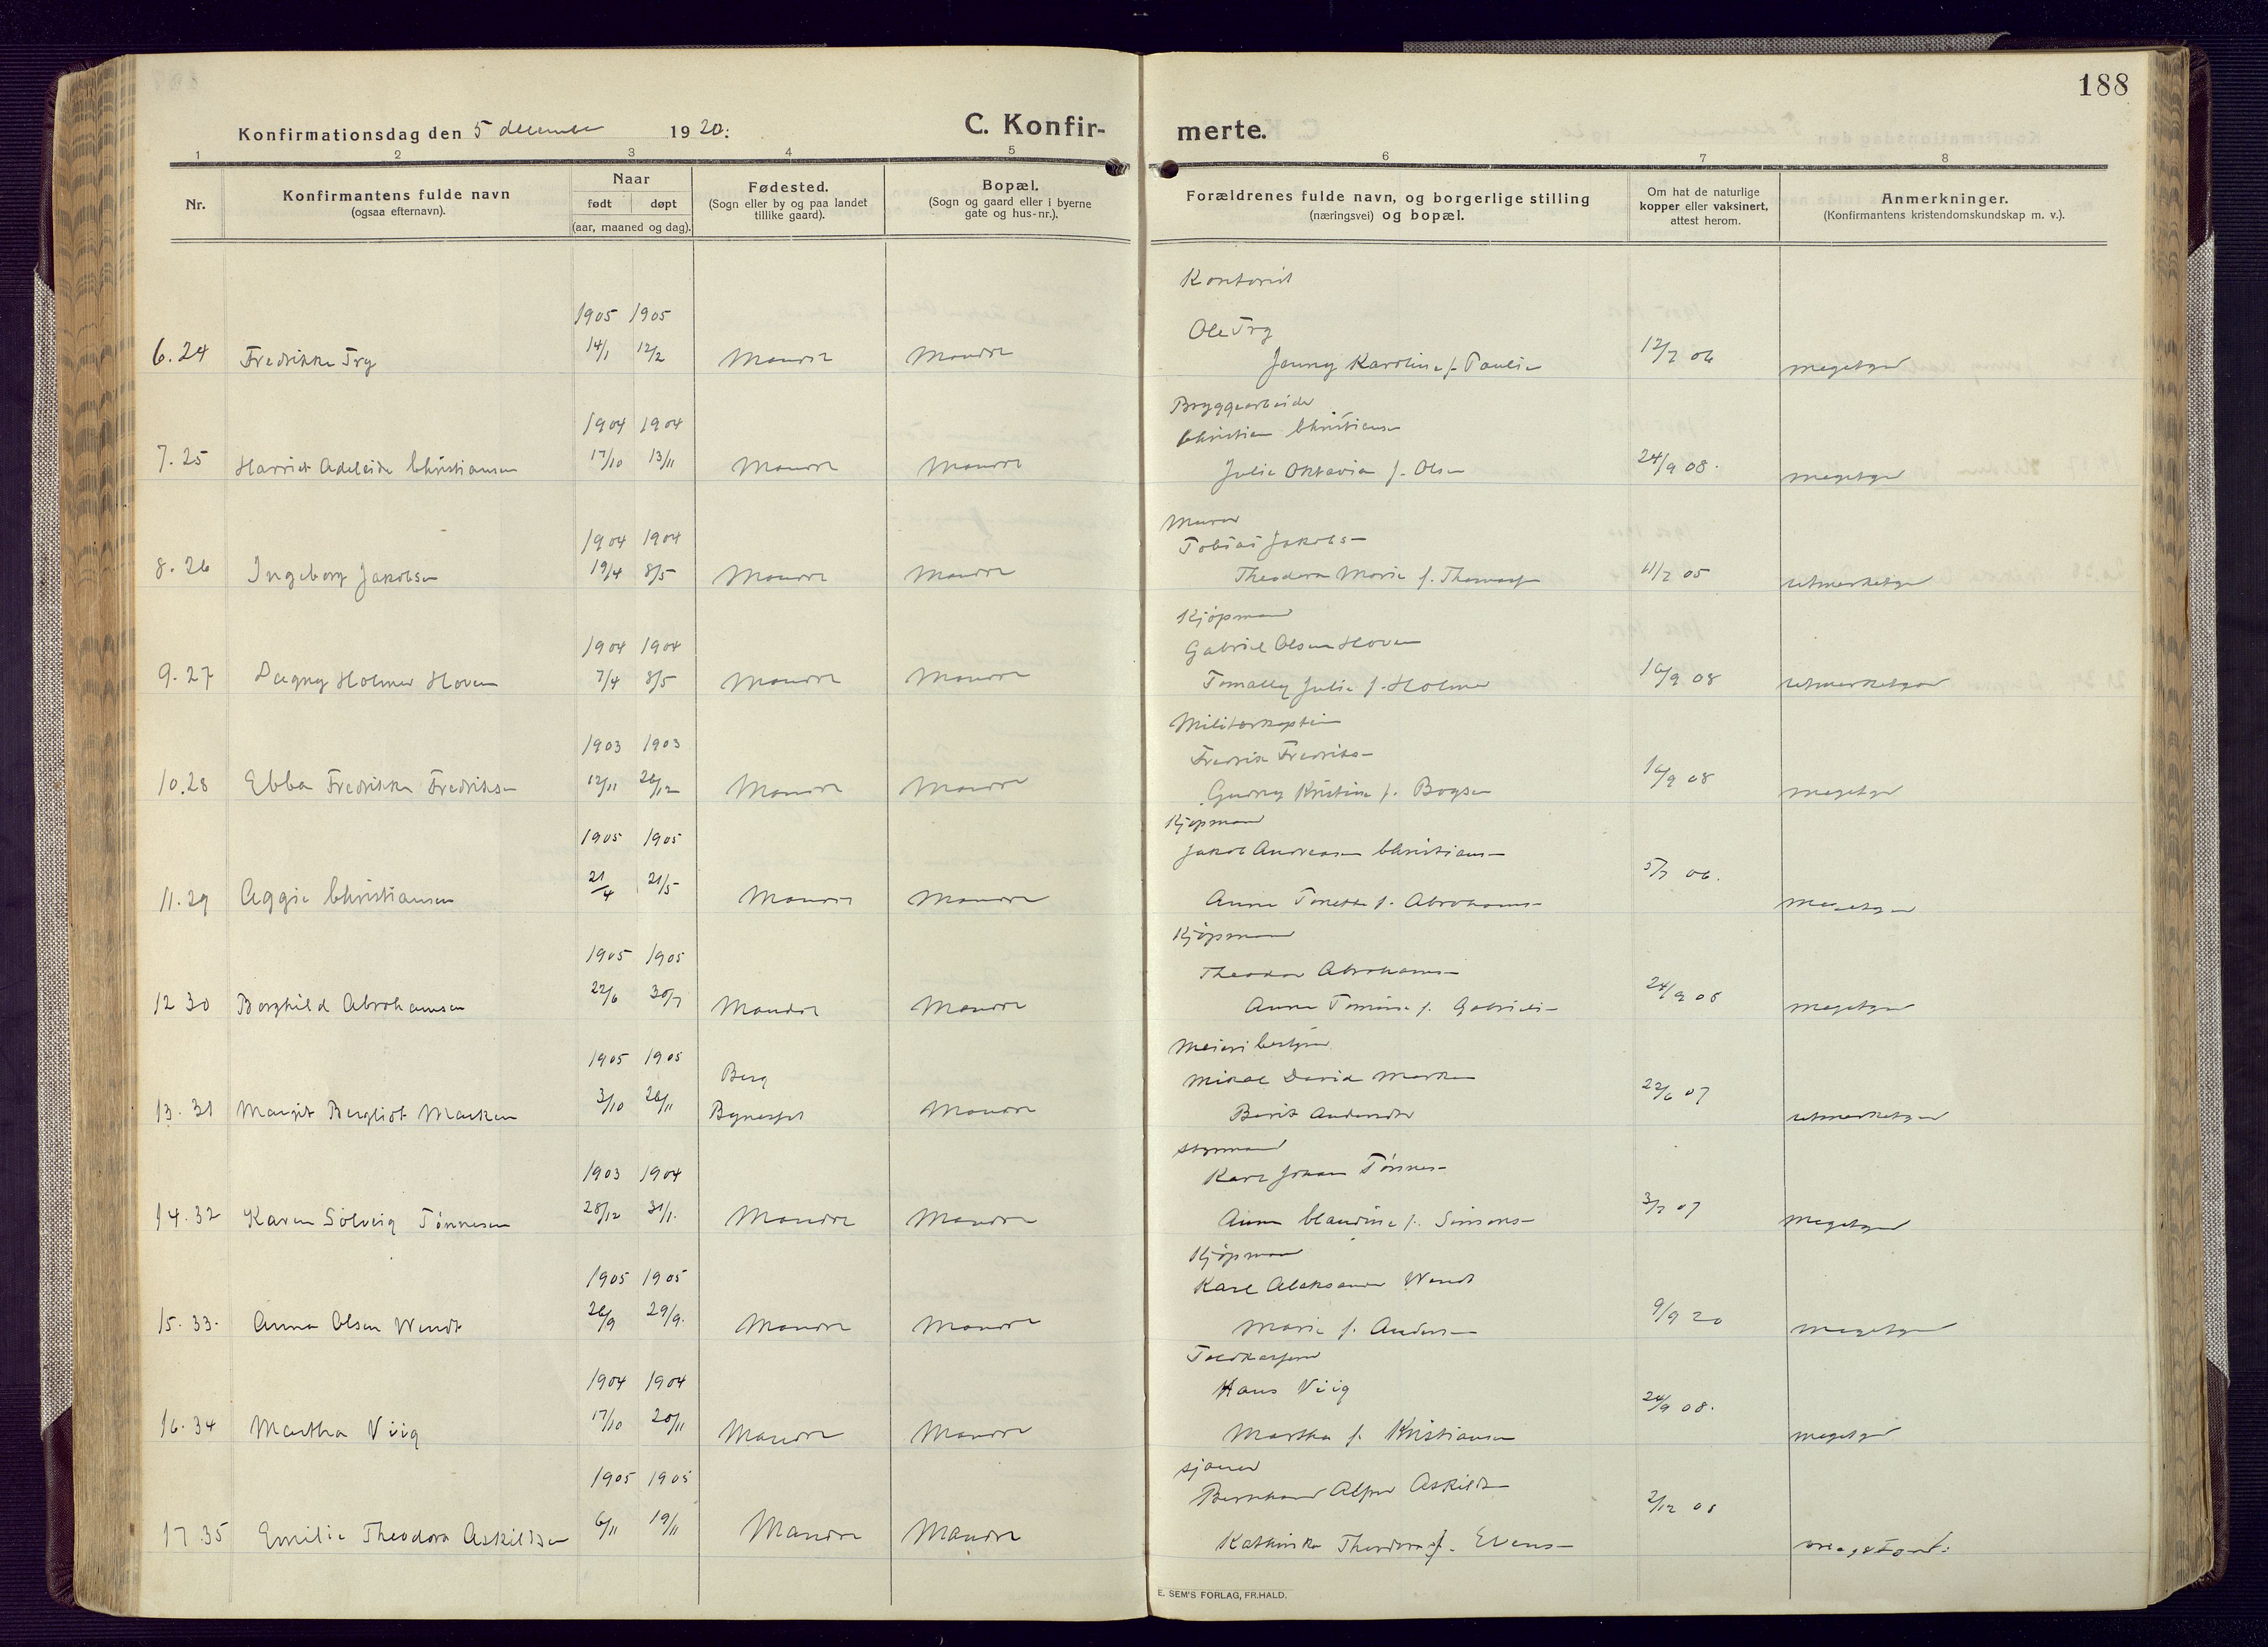 188
Konfirmationsdag den 5 december 1920:
C. Konfir-
merte.
1 2 3 4 5 6 7 8
Nr.
Konfirmantens fulde navn
(ogsaa efternavn).
Naar
født døpt
(aar, maaned og dag).
Fødested.
(Sogn eller by og paa landet
tillike gaard).
Bopæl.
(Sogn og gaard eller i byerne
gate og hus-nr.).
Forældrenes fulde navn, og borgerlige stilling
(næringsvei) og bopæl.
Om hat de naturlige
kopper eller vaksinert,
attest herom.
Anmerkninger.
(Konfirmantens kristendomskundskap m. v.).
Kontorist
1905 1905
Ole Try
6. 24 Fredrikke Try 14/1 12/2 Mandal Mandal
Jenny Karoline f. 12/7 06 megetgod
Bryggearbeider
1904 1904
Christian Christiansen
7. 25 Harriet Adeleide Christiansen 17/10 13/11 Mandal Mandal
Julie Oktavia f. Olsen 24/9 08. megetgod
Murer
1904 1904
Tobias Jakobsen
8. 26 Ingeborg Jakobsen 19/4 8/5 Mandal Mandal
Theodora Marie f. Thomassen 11/7 05 utmerketgod
Kjøpmand
1904 1904
Gabriel Olsen Hoven
9. 27 Dagny Holmer Hoven 7/4 8/5 Mandal Mandal
Tomally Julie f. Holmer 16/9 08 utmerketgod
Militærkaptein
1903 1903
Fredrik Fredriksen
10. 28 Ebba Fredrikke Fredriksen 12/11 26/12 Mandal Mandal
Gudny Kristine f. 16/9 08 megetgod
Kjøpmand
1905 1905
Jakob Andreasen Christiansen
11. 29 Aggie Christiansen 21/4 21/5 Mandal Mandal
Anna Tonette f. Abrahamsen 5/7 06. megetgod
Kjøpmand
1905 1905
Theodor Abrahamsen
12 30 Borghild Abrahamsen 22/6 30/7 Mandal Mandal
Anna Tomine f. Gabrielsen 24/9 08 megetgod
Meieribestyrer
1905 1905
Berg
Mikal David Marken
13. 31 Margit Bergliot Marken 3/10 26/11 Bynesset Mandal
Berit 22/6 07 utmerketgod
Styrmand
1903 1904
Karl Johan Tønnesen
14. 32 Karen Solveig Tønnesen 28/12 31/1. Mandal Mandal
Anna Claudine f. Simonsen 3/7 07 megetgod
Kjøpmand
1905 1905
Karl Aleksander Wendt
15. 33. Anna Olsen Wendt 26/9 29/9. Mandal Mandal
Marie f. Andersen 9/9 20 megetgod
Toldkasserer
1904 1904
Hans Viig
16. 34 Martha Viig 17/10 20/11 Mandal Mandal
Martha f. Kristiansen 24/9 08. megetgod
Sjauer
1905 1905
Bernhard Alfred Askildsen
17. 35 Emilie Theodora Askildsen 6/11 19/11 Mandal Mandal
Kathinka Theodora f. Evensen 2/12 08
E. SEM'S FORLAG, FR.HALD.